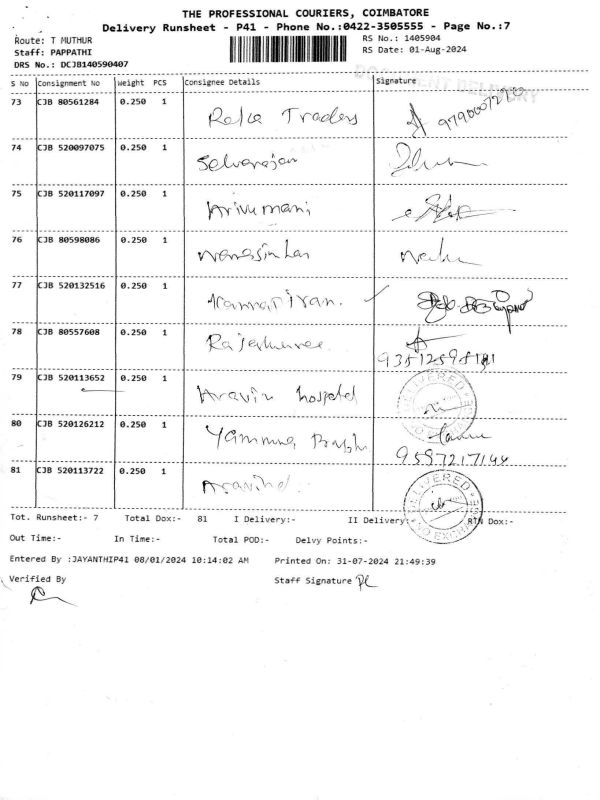 THE PROFESSIONAL COURIERS, COIMBATORE
Delivery Runsheet - P41 - Phone No.:0422-3505555 - Page No.:7
Route: T MUTHUR RS No.: 1405904
Staff: PAPPATHI RS Date: 01-Aug-2024
DRS No.: DCJB140590407
S No Consignment No Weight PCS Consignee Details Signature
73 CJB 80561284 0.250 1
Traders
74 CJB 520097075 0.250 1
Selvarajan
75 CJB 520117097 0.250 1
Arivumani
76 CJB 80598086 0.250 1
77 CJB 520132516 0.250 1
78 CJB 80557608 0.250 1
79 CJB 520113652 0.250 1
Aravin hospital DELIVERED
80 CJB 520126212 0.250 1
Yammuna
9597217144
81 CJB 520113722 0.250 1
Aravind DELIVERED
Tot. Runsheet:- 7 Total Dox:- 81 I Delivery:- II Delivery:- RTN Dox:-
Out Time:- In Time:- Total POD:- Delvy Points:-
Entered By :JAYANTHIP41 08/01/2024 10:14:02 AM Printed On: 31-07-2024 21:49:39
Verified By Staff Signature